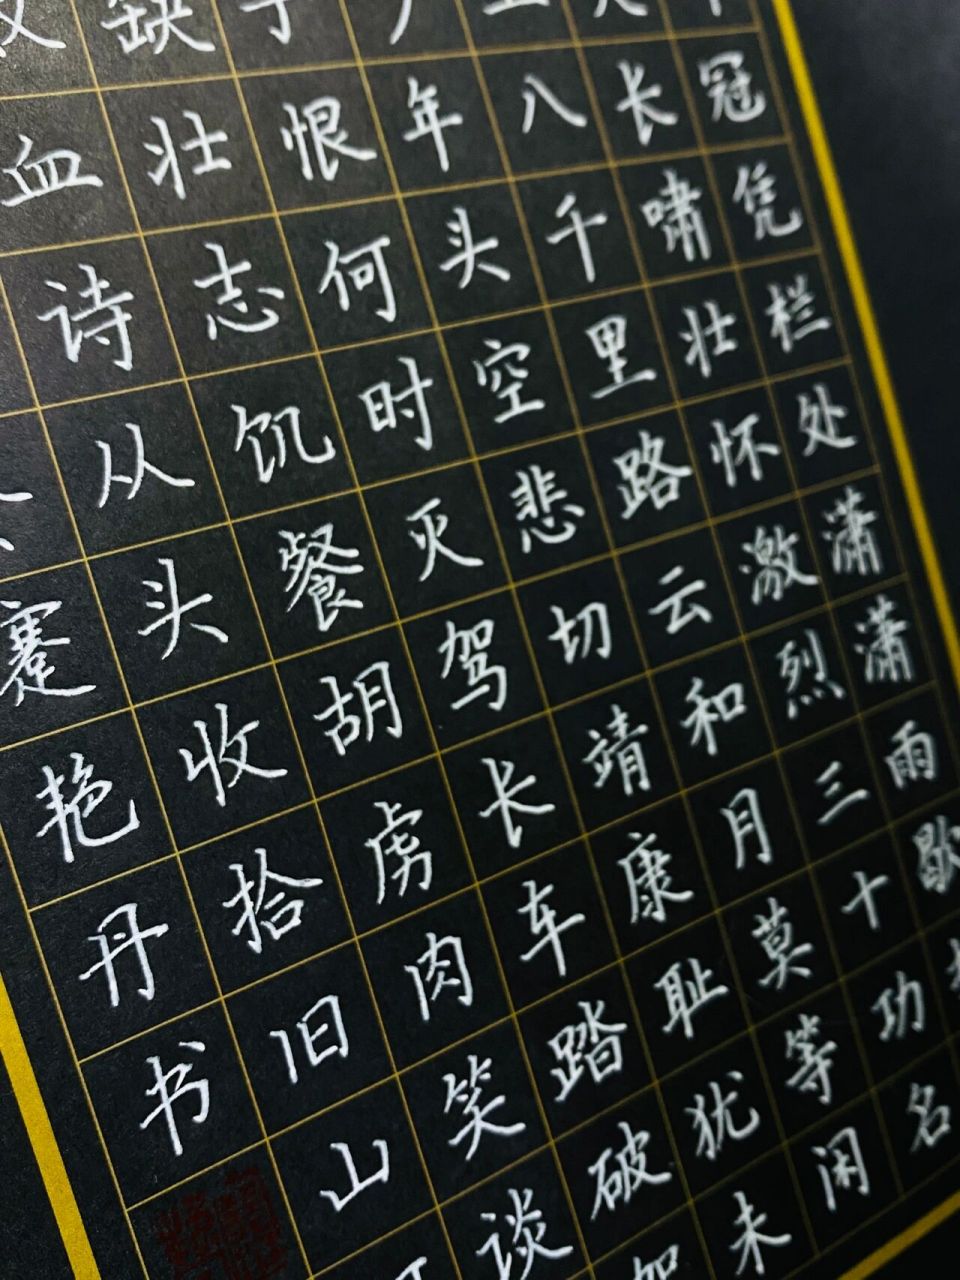 冠凭栏处潇潇雨歇
长啸壮怀激烈三十功名
八千里路云和月莫等闲
年头空悲切靖康耻犹未
恨何时灭驾长车踏破贺
缺壮志饥餐胡虏肉笑谈
血待从头收拾旧山
蹇艳丹书